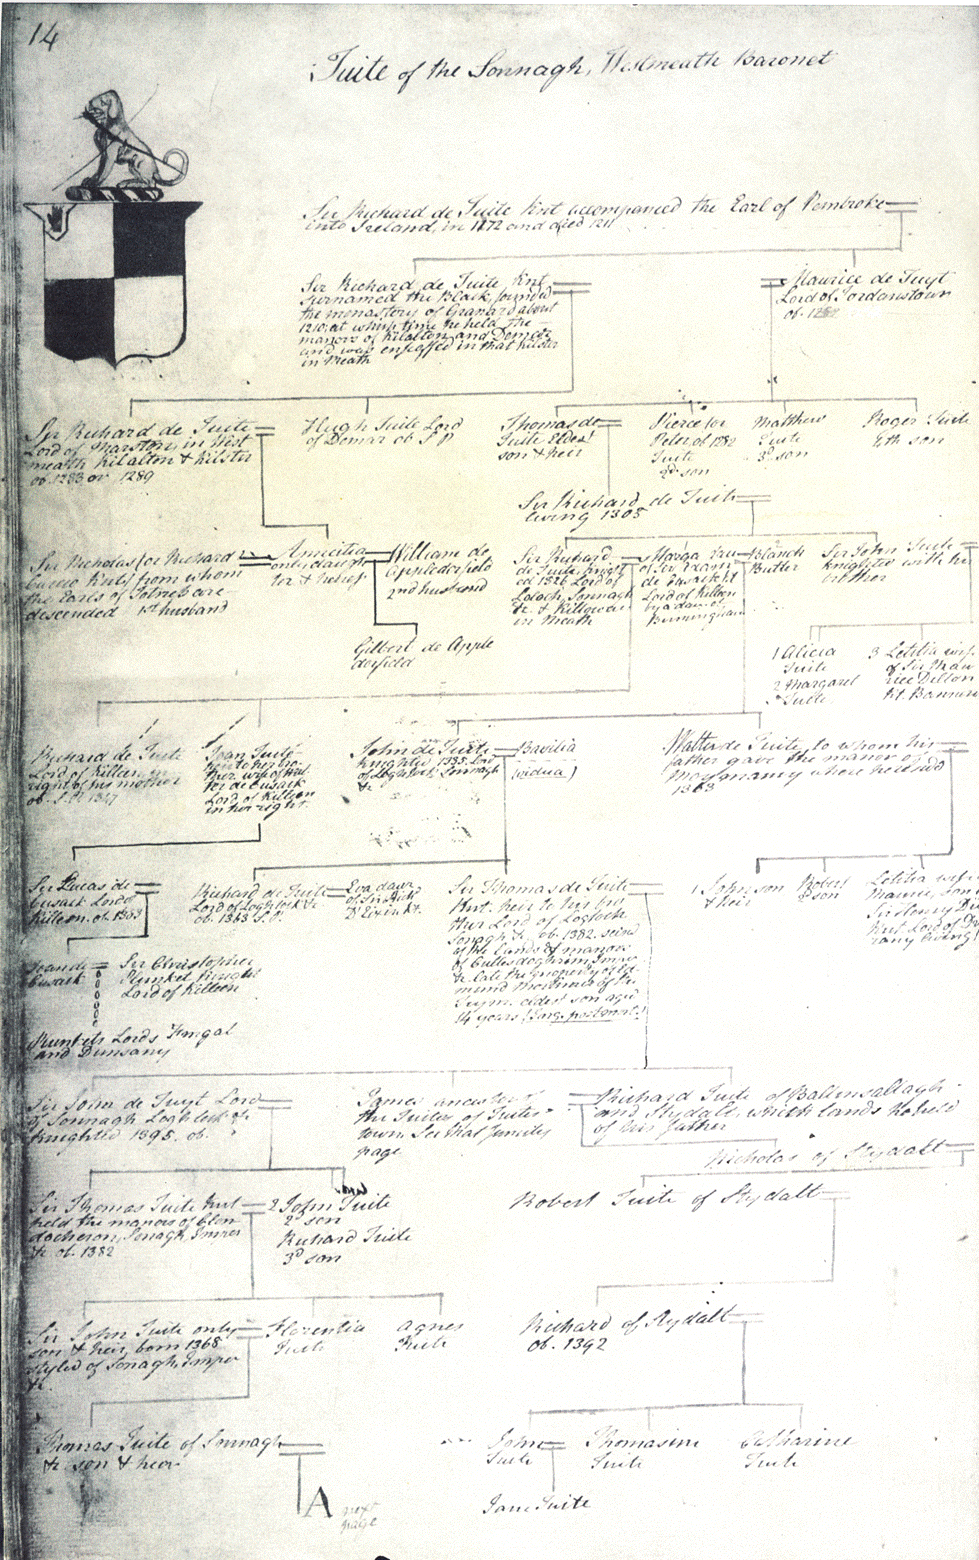 14
Tuite of the Sonnagh, Westmeath Baronet
Sir Richard de Tuite Knt accompanied the Earl of Pembroke
into Ireland, in 1172 and died 1211
Sir Richard de Tuite Knt
surnamed the Black, founded
the monastery of Granard about
1210, at which time he held the
manors of Kilalton and Demar
and was enfeoffed in that Kilster
in Meath
Maurice de Tuyt
Lord of Jordanstown
ob.
Sir Richard de Tuite
Lord of Marston, in West
meath Kilalton & Kilster
ob. 1283 or 1289
Hugh Tuite Lord
of Demar ob. S.P.
Thomas de
Tuite Eldest
son & heir
Pierce (or
Peter ob 1282
Tuite
2d son
Matthew
Tuite
3d son
Roger Tuite
4th son
Sir Richard de Tuite
living 1305
Sir Nicholas (or Richard)
Knts from whom
the Earls of are
descended 1st husband
Amicitia
only daugh
ter & heiress
William de
Appledorfield
2nd husband
Gilbert de Apple
dorfield
Sir Richard
de Tuite, knight
ed 1326 Lord of
Loloch, Sonnagh
&c. & Killowen
in Meath
of Sir Adam
de Cusack Kt
Lord of Killeen
by a daur of
Birmingham
Blanch
Butler
Sir John Tuite
Knighted with his
brother
1 Alicia
Tuite
2 Margaret
Tuite
3 Letitia wife
of Sir Mau
rice Dillon
Kt.
Richard de Tuite
Lord of Killeen
right of his mother
ob. S.P. 1327
Joan Tuite
heir to her bro
ther wife of Wal
ter de Cusack
Lord of Killeen
in her right.
John de Tuite
Knighted 1335, Lord
of Loghloch, Sonnagh
&c.
Basilia
(vidua)
Walter de Tuite, to whom his
father gave the manor of
Moymanny where he lived
1363
Sir Lucas de
Cusack Lord of
Killeen. ob. 1383
Richard de Tuite
Lord of Loghlock &c
ob. 1363 S.P.
Eva daur
of Sir Rich
Kt.
Sir Thomas de Tuite
Knt. heir to his bro
ther Lord of Logloch
Sonagh &c, ob. 1382. seised
of the lands & manors
of
&c. late the property of Ed
mund Mortimer of the
eldest son aged
14 years (Inq. post mort.)
1 John son
& heir
Robert
2d son
Letitia wife
Joan de
Cusack
Sir Christopher
Plunket Knight
Lord of Killeen
Plunkets Lords Fingal
and Dunsany
Sir John de Tuyt Lord
of Sonnagh Loghlock &c
Knighted 1395. ob.
James ancestor of
the Tuites of Tuites=
town. See that family's
page.
Richard Tuite of Ballinsallagh
and Stydalt, which lands he held
of his father
Nicholas of Stydalt
Sir Thomas Tuite Knt
held the manors of Clon
Sonagh, Imper
&c ob. 1382
2 John Tuite
2d son
Richard Tuite
3d son
Robert Tuite of Stydalt
Sir John Tuite only
son & heir, born 1368
styled of Sonagh, Imper
&c.
Florentia
Tuite
Agnes
Tuite
Richard of Stydalt
ob. 1392
Thomas Tuite of Sonnagh
&c son & heir
John
Tuite
Thomasine
Tuite
Catharine
Tuite
A next
page
Jane Tuite